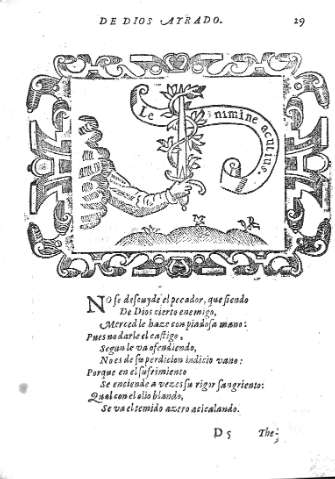 DE DIOS AYRADO. 29
Le nimine acutius.
NO se descuyde el pecador, que siendo
De Dios cierto enemigo,
Merced le haze con piadosa mano:
Pues no darle el castigo,
Segun le va ofendiendo,
No es de su perdicion indicio vano:
Porque en el sufrimiento
Se enciende a vezes su rigor sangriento:
Qual con el olio blando,
Se va el temido azero acicalando.
D 5 The-